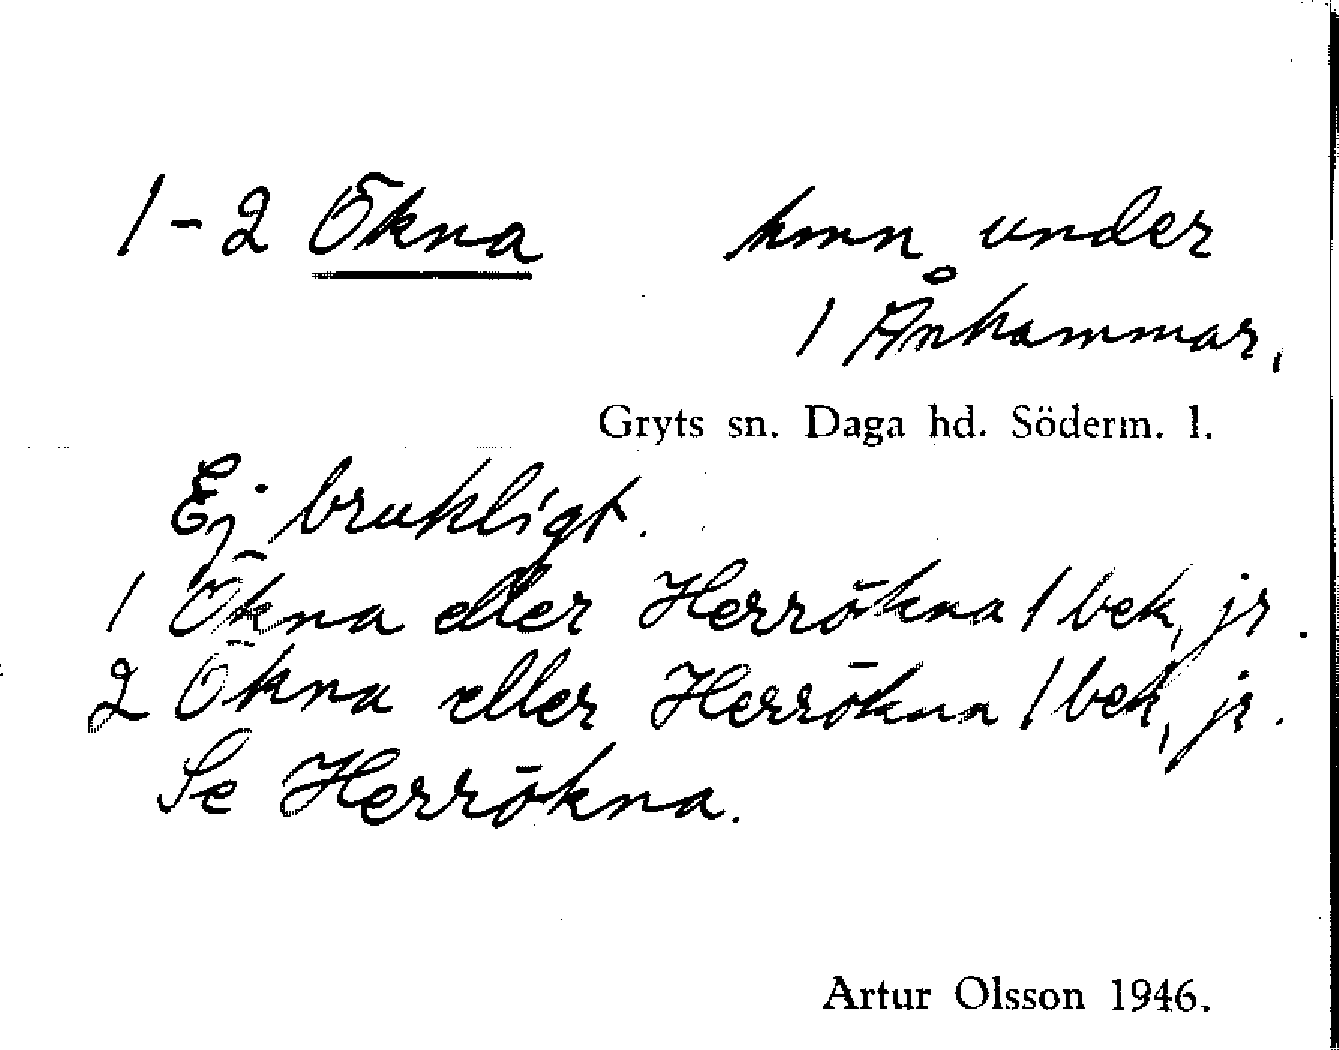 1-2 Ökna hmn under
1 Ånhammar,
Gryts sn. Daga hd. Söderm. l.
Ej brukligt.
1 Ökna eller Herrökna 1 bek, jr.
2 Ökna eller Herrökna 1 bek, jr.
Se Herrökna.
Artur Olsson 1946.